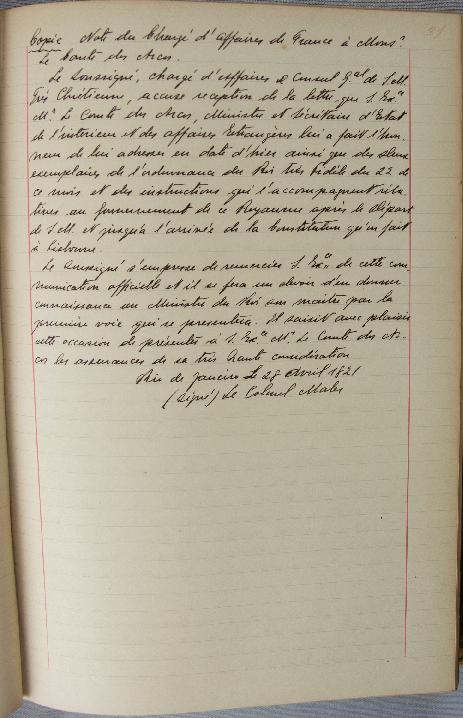 Copie Note du Chargé d'affaires de France à Monsr.
Le Comte des Arcos.
Le Soussigné, chargé d'affaires & Consul Gal de S. M.
Très Chrétienne, accuse reception de la lettre que S. Exa
Mr. Le Comte des Arcos, Ministre et Sécrétaire d'Etat
de l'intérieur et des affaires Etrangères lui a fait l'hon-
neur de lui adresser en date d'hier ainsi que des deux
exemplaires de l'ordonnance du Roi très fidèle du 22 de
ce mois et des instructions qui l'accompagnent rela-
tives au Gouvernement de ce Royaume après le départ
de S. M. et jusqu'a l'arrivée de la Constitution qu'on fait
à Lisbonne.
Le Soussigné s'empresse de remercier S. Exa de cette com-
munication officielle et il se fera un devoir d'en donner
connaissance au Ministre du Roi son maître par la
première voie qui se presentera. Il saisit avec plaisir
cette occasion de présenter à S. Exa Mr. Le Comte des Ar-
cos les assurances de sa très haute considération
Rio de Janeiro Le 28 Avril 1821
(signé) Le Colonel Maler